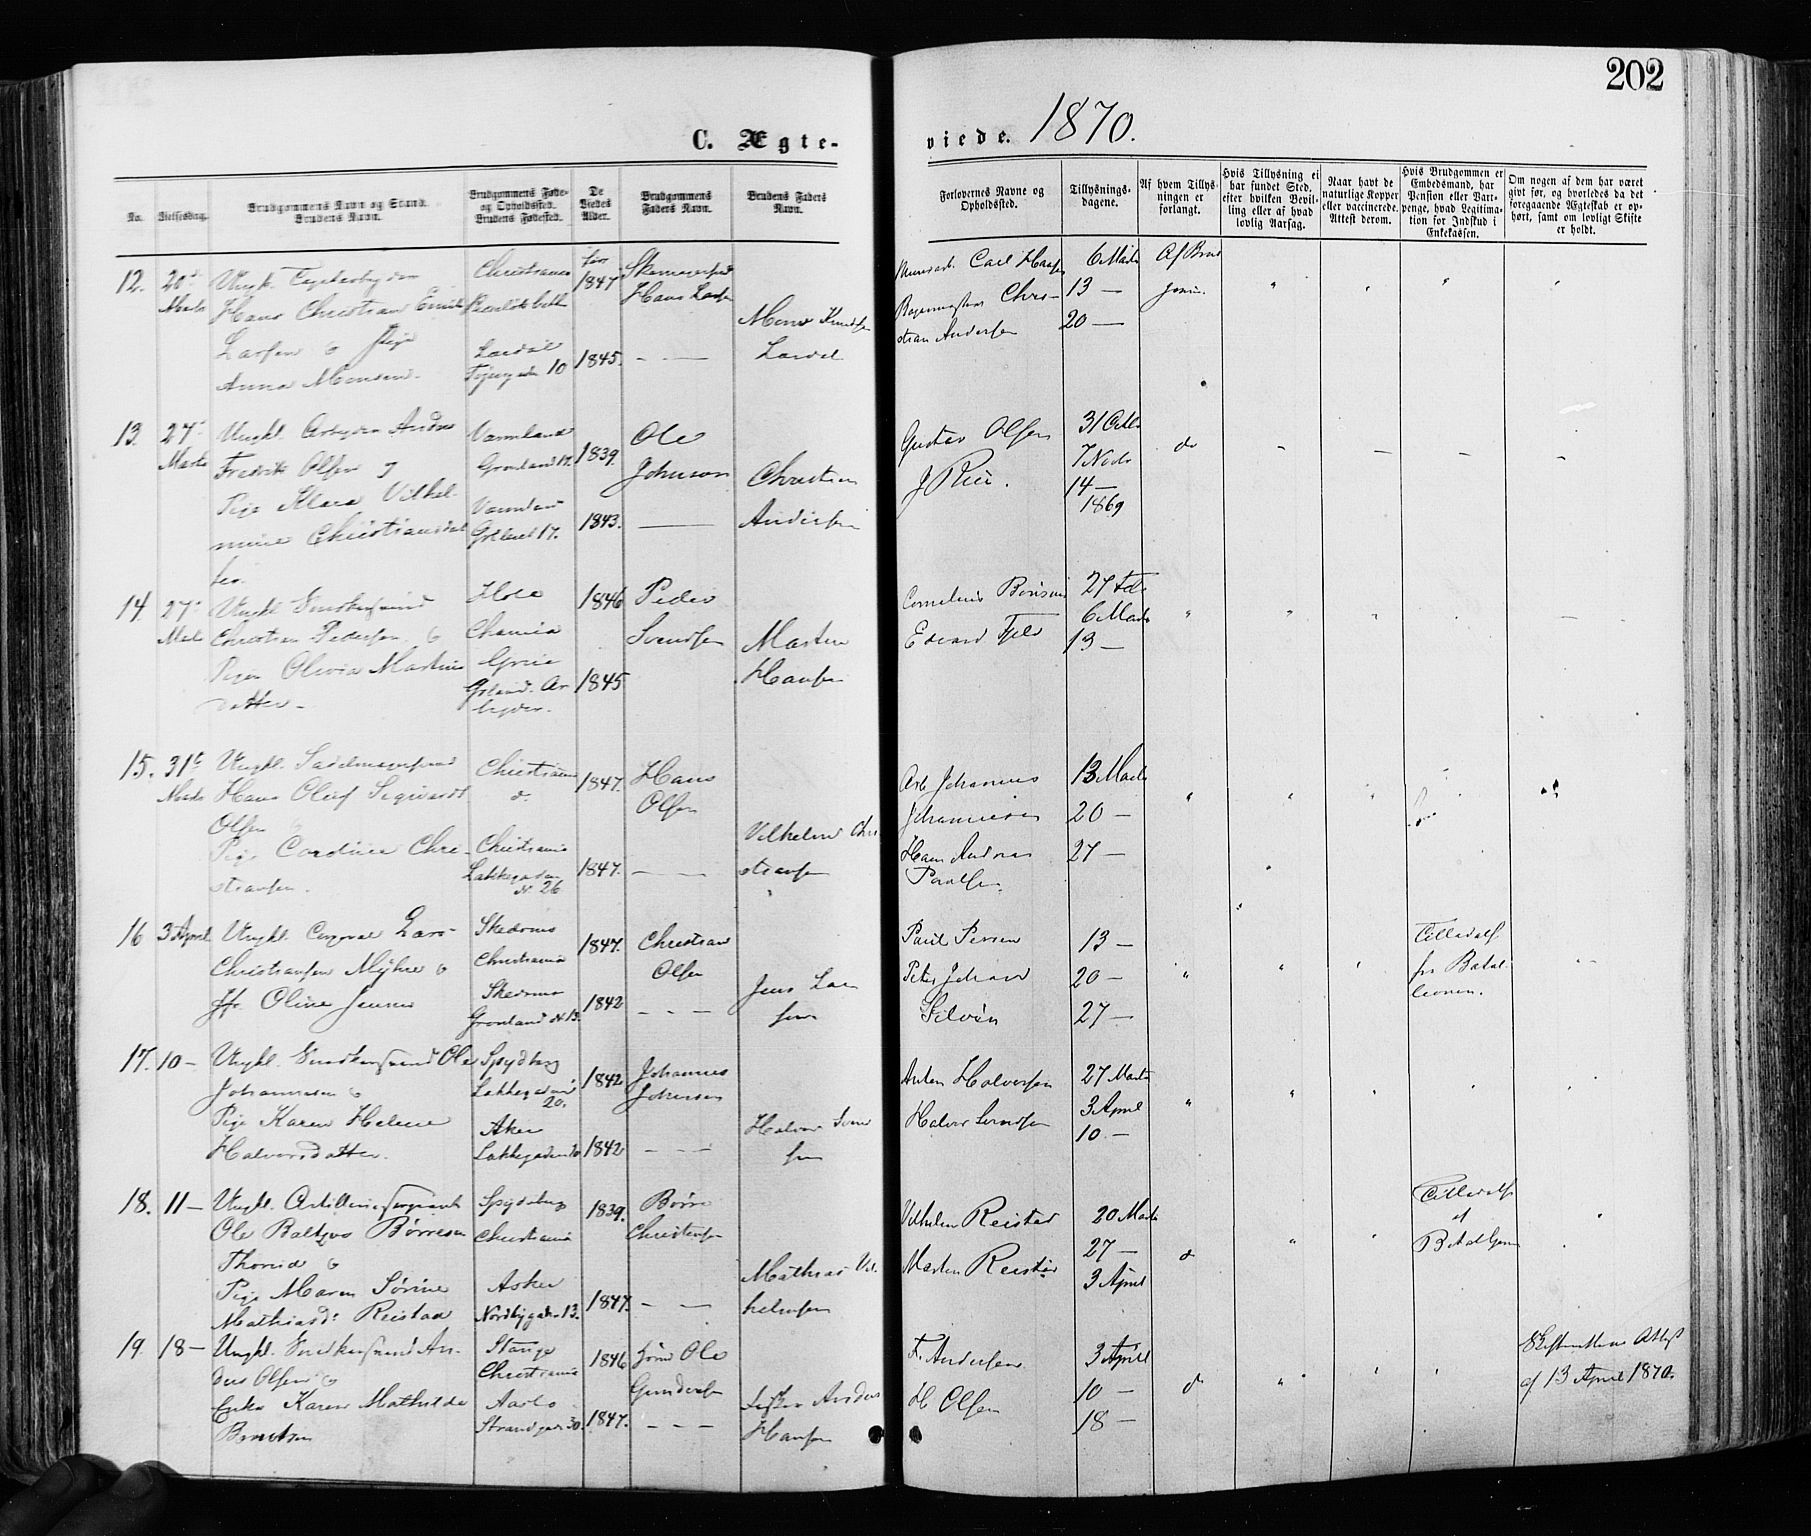 202
C. Ægte-
viede. 1870.
No.
Vielsesdag.
Brudgommens Navn og Stand.
Brudens Navn.
Brudgommens Føde-
og Opholdssted.
Brudens Fødested.
De
Viedes
Alder.
Brudgommens
Faders Navn.
Brudens Faders
Navn.
Forlovernes Navne og
Opholdssted.
Tillysnings-
dagene.
Af hvem Tillys-
ningen er
forlangt.
Hvis Tillysning ei
har fundet Sted,
efter hvilken Bevil-
ling eller af hvad
lovlig Aarsag.
Naar havt de
naturlige Kopper
eller vaccinerede.
Attest derom.
Hvis Brudgommen er
Embedsmand, har
Pension eller Vart-
penge, hvad Legitima-
tion for Indskud i
Enkekassen.
Om nogen af dem har været
gift før, og hvorledes da det
foregaaende Ægteskab er op-
hørt, samt om lovligt Skifte
er holdt.
12. 20
Marts
Ungk.
Hans Christian Emil
Larsen & Pige
Anna Monsen.
Christiania
Lærdal
10
1847
1845.
Hans Larsen
Mons Knudsen
Lærdal
Carl Hansen
Chri-
stian Andersen
6 Marts
13 —
20 —
Af Brud
13. 27
Marts
Ungkl. Arbeider Andrs
Fredrik Olsen &
Pige Klara Vilhel-
mine Christiansdat
ter.
Varmland
Grønland 17.
Varmland
17.
1839.
1843.
Ole
Johnson
Christian
Andersen
Gustav Olsen
31 Octb
7 Novb
14 —
1869
do
14 27
Ungkl Snedkersvend
Christian Pedersen &
Pigen Olivia Martins
datter
Hole
Chania
1846
1845
Peder
Svendsen
Martin
Hansen
Cornelius
Edvard
27 Feb
6 Marts
13 —
15. 31
Marts
Ungkl. Sadelmagersvend
Hans Oluf Sigvardt
Olsen &
Pige Cordine Chri-
stiansen.
Christiania
d.
Christiania
Lakkegaden
N 26
1847.
1847.
Hans
Olsen
Vilhelm Chri
stiansen
Arb Johannes
Johannesen
Hans Andreas
Paulsen
13 Marts
20 —
27 —
16 3 April
Ungkl. Corporal Lars
Christiansen Myhre &
Jfr. Oline Jensen
Skedsmo
Christiania
Skedsmo
Grønland N 13.
1847.
1842
Christian
Olsen
Jens Lar
sen
Paul
Peter Johan
13 —
20 —
27 —
Tilladelse
fra Batal-
lionen.
17. 10 —
Ungkl. Snedkersvend Ole
Johannesen &
Pige Karen Helene
Halvorsdatter.
Spydberg
Lakkegaden
20.
Aker
Lakkegaden 20
1842
1842
Johannes
Johnsen
Halvor Svend
sen
Anton Halvorsen
Halvor Svendsen
27 Marts
3 April
10 —
18. 11 —
Ungkl. Artillerisergeant
Ole Baltzer Børresen
&
Pige Maren Sørine
Mathiasd: Reistad
Spydeberg
Christiania
Asker
Nordbygaden 13.
1839.
1847.
Børre
Christensen
Mathias Vil
helmsen
Vilhelm Reistad
Morten Reistad
20 Marts
27 —
3 April
d
Tilladelse
af
19. 18 —
Ungkl. Snedkersvend An-
ders Olsen &
Enke Karen Mathilde
Berntsen
Stange
Christiania
Strandgaden 30.
1846
1847.
Ole
Gundersen
Anders
Hansen
F. Andersen
H Olsen
3 April
10 —
18 —
d
Skifterettens Attest
af 13 April 1870.